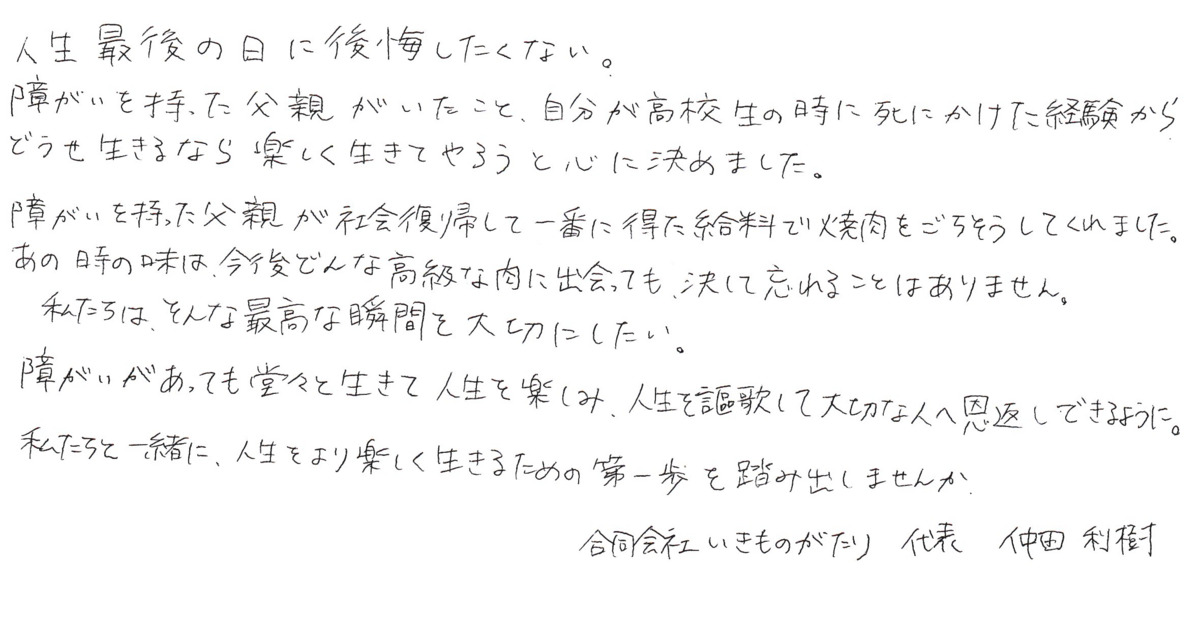 人生最後の日に後悔したくない。
障がいを持った父親がいたこと、自分が高校生の時に死にかけた経験から
どうせ生きるなら楽しく生きてやろうと心に決めました。
障がいを持った父親が社会復帰して一番に得た給料で焼肉をごちそうしてくれました。
あの時の味は、今後どんな高級な肉に出会っても、決して忘れることはありません。
私たちは、そんな最高な瞬間を大切にしたい。
障がいがあっても堂々と生きて人生を楽しみ、人生を謳歌して大切な人へ恩返しできるように。
私たちと一緒に、人生をより楽しく生きるための第一歩を踏み出しませんか
合同会社いきものがたり 代表 仲田 利樹